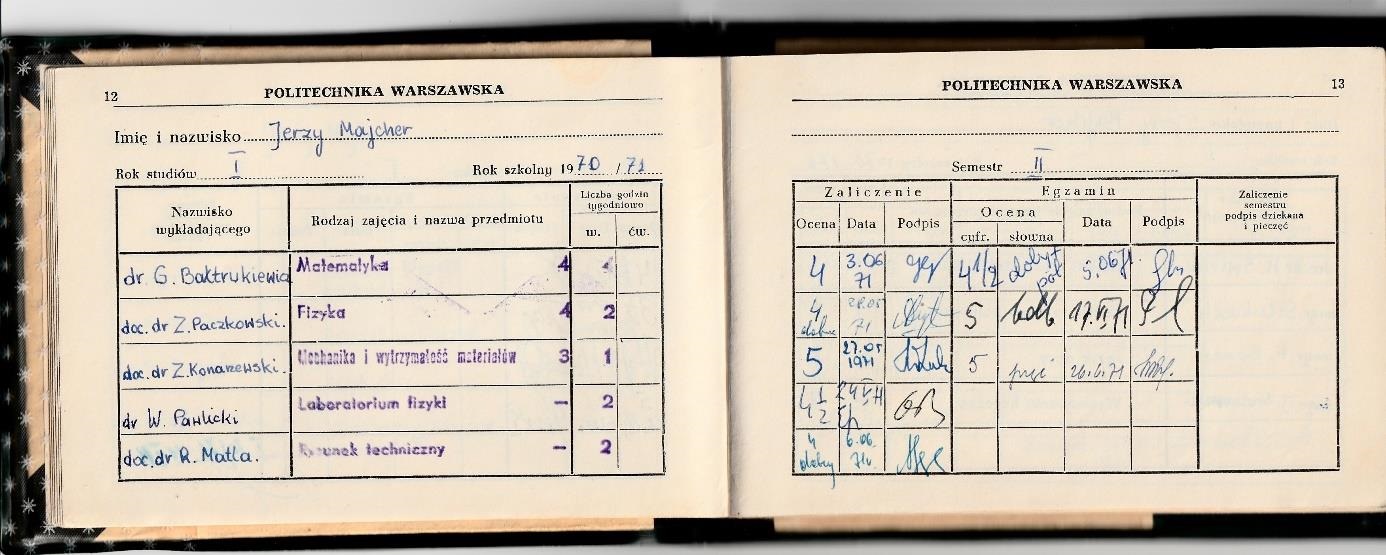 12 POLITECHNIKA WARSZAWSKA
Imię i nazwisko Jerzy Majcher
Rok studiów I Rok szkolny 1970/71
Nazwisko wykładającego
Rodzaj zajęcia i nazwa przedmiotu
Liczba godzin tygodniowo
w. ćw.
dr G. Bałtrukiewicz Matematyka 4 4
doc. dr Z. Paczkowski. Fizyka 4 2
doc. dr Z. Konarzewski. Mechanika i wytrzymałość materiałów 3 1
dr W. Pawlicki Laboratorium fizyki — 2
doc. dr R. Matla. Rysunek techniczny — 2
POLITECHNIKA WARSZAWSKA 13
Semestr II
Zaliczenie Egzamin
Zaliczenie semestru podpis dziekana i pieczęć
Ocena Data Podpis Ocena Data Podpis
cyfr. słowna
4 3.06 71 4 1/2 5.06 71
4 71 5 bdb 17.VI 71
5 27.05 1971 5 26.6.71
4 1/2
4 dobry 6.06. 71r.